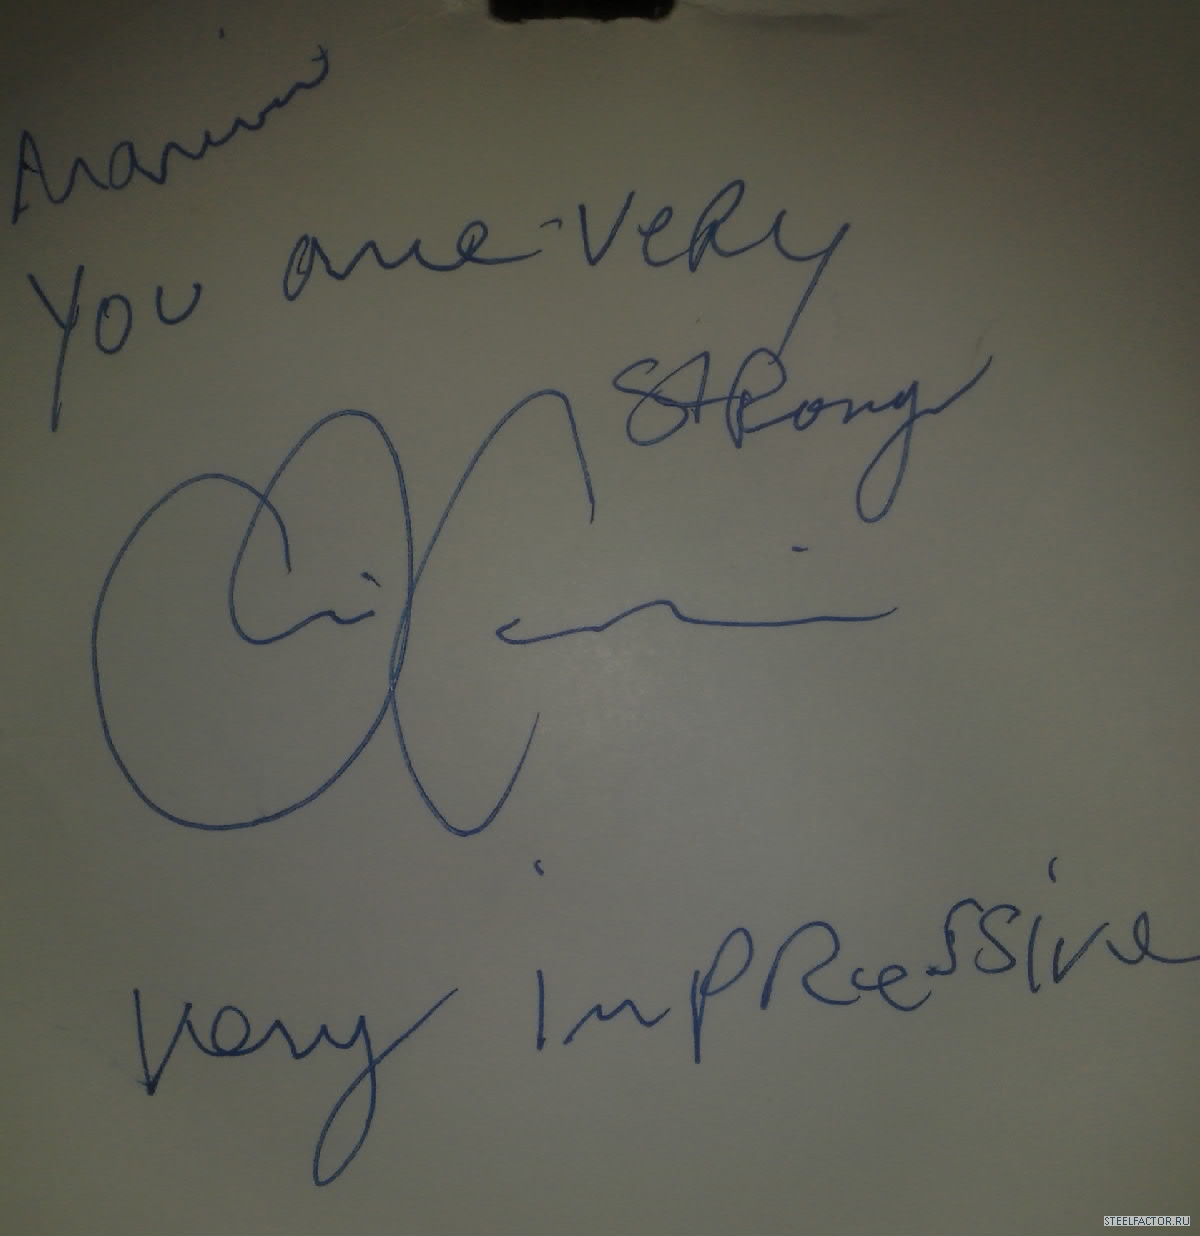 You are very
strong
Very impressive
STEELFACTOR.RU